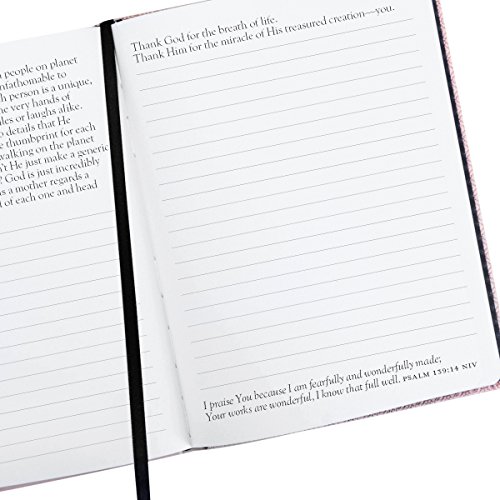 people on planet
nfathomable to
h person is a unique,
e very hands of
les or laughs alike.
details that He
e thumbprint for each
walking on the planet
't He just make a generic
? God is just incredibly
s a mother regards a
t of each one and head
Thank God for the breath of life.
Thank Him for the miracle of His treasured creation—you.
I praise You because I am fearfully and wonderfully made;
Your works are wonderful, I know that full well. PSALM 139:14 NIV